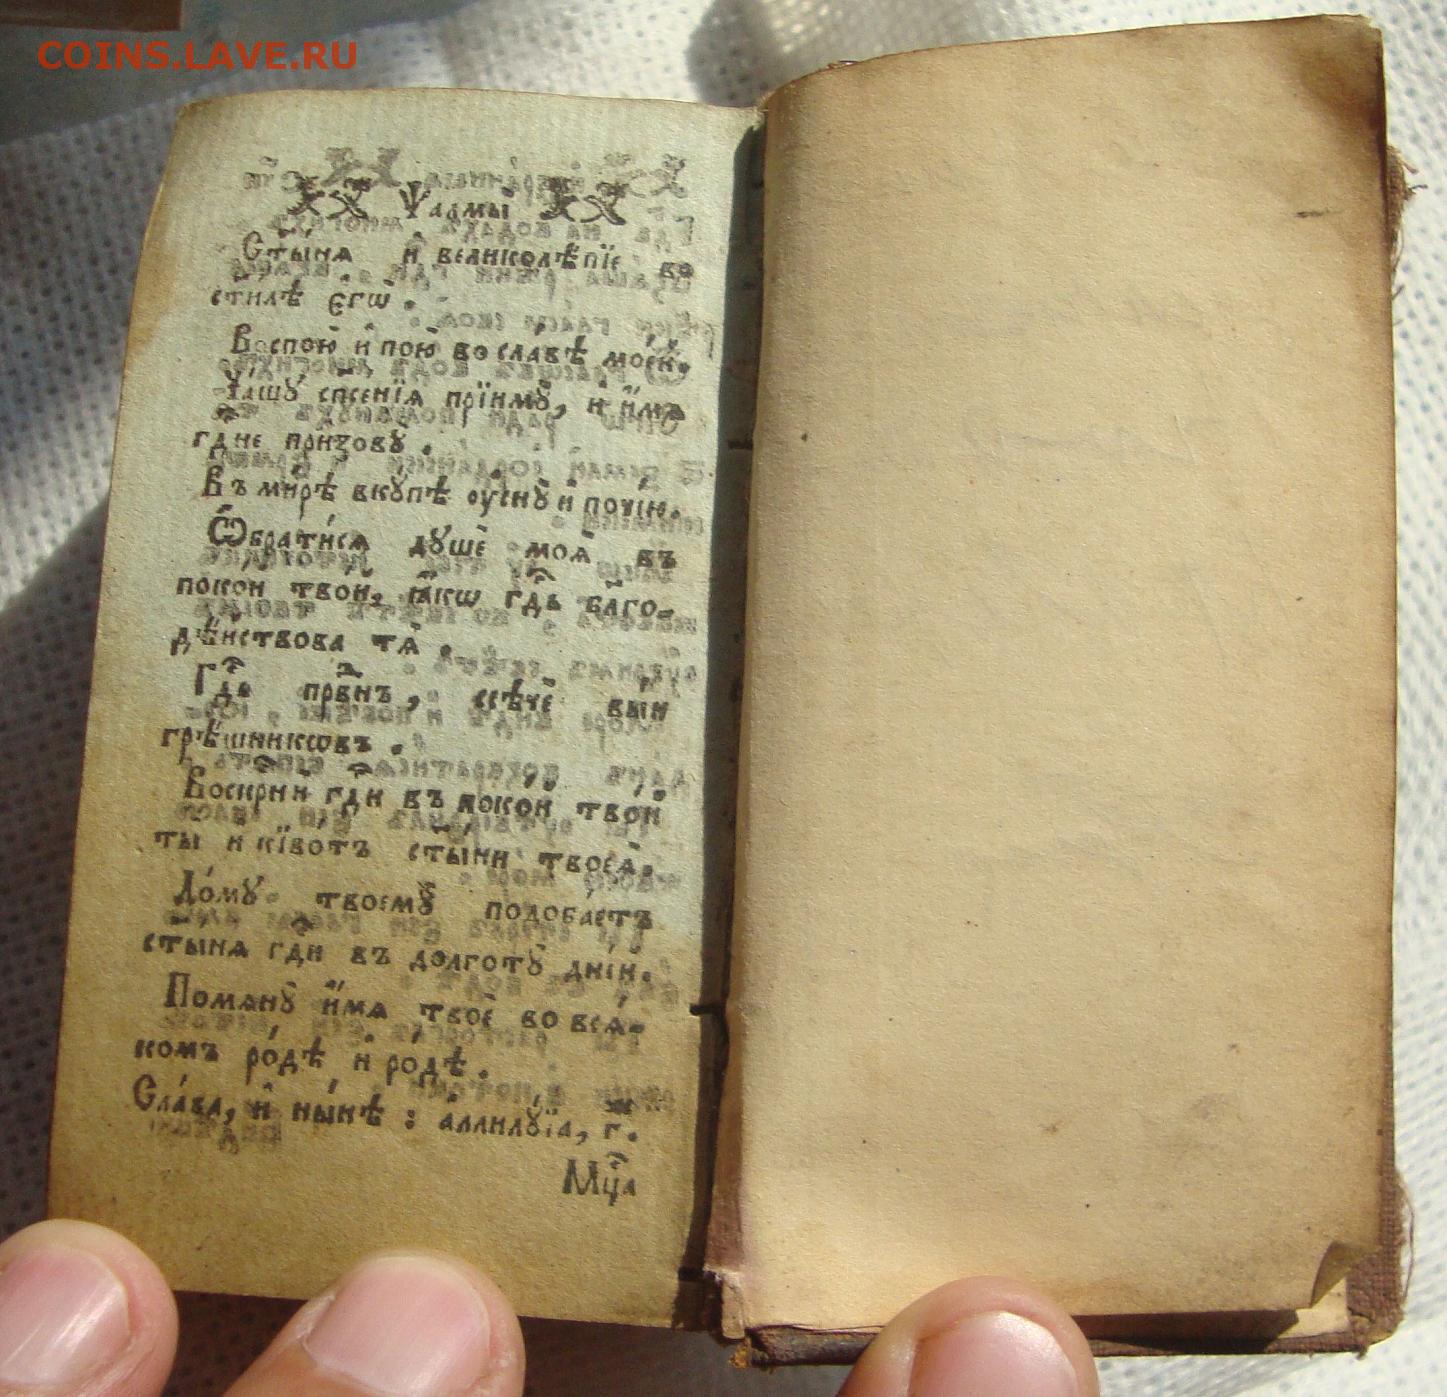 COINS.LAVE.RU
Ѱалмы̀
Ст҃ы́нѧ и҆ великолѣ́пїе во
ст҃и́лѣ є҆гѡ̀.
Воспою̀ и҆ пою̀ во сла́вѣ мое́й.
Чашꙋ̀ сп҃се́нїѧ прїимꙋ̀, и҆ и҆́мѧ
гд҇не призовꙋ̀.
Въ ми́рѣ вкꙋ́пѣ ᲂу҆снꙋ̀ и҆ почі́ю.
Ѡ҆брати́сѧ дꙋшѐ моѧ̀ въ
поко́й тво́й, ꙗ҆́кѡ гд҇ь бл҃го-
дѣ́йствова тѧ̀.
Гд҇ь првⷣнъ, ссѣчѐ вы́и
грѣ́шникѡвъ.
Воскрⷭ҇нѝ гд҇и въ поко́й тво́й
ты̀ и҆ кївѡ́тъ ст҃ы́ни твоеѧ̀.
До́мꙋ твоемꙋ̀ подоба́етъ
ст҃ы́нѧ гд҇и въ долготꙋ̀ дні́й.
Помѧнꙋ̀ и҆́мѧ твоѐ во всѧ́-
комъ ро́дѣ и҆ ро́дѣ.
Сла́ва, и҆ ны́нѣ: а҆ллилꙋ́їа, г҃.
Мцⷭ҇а